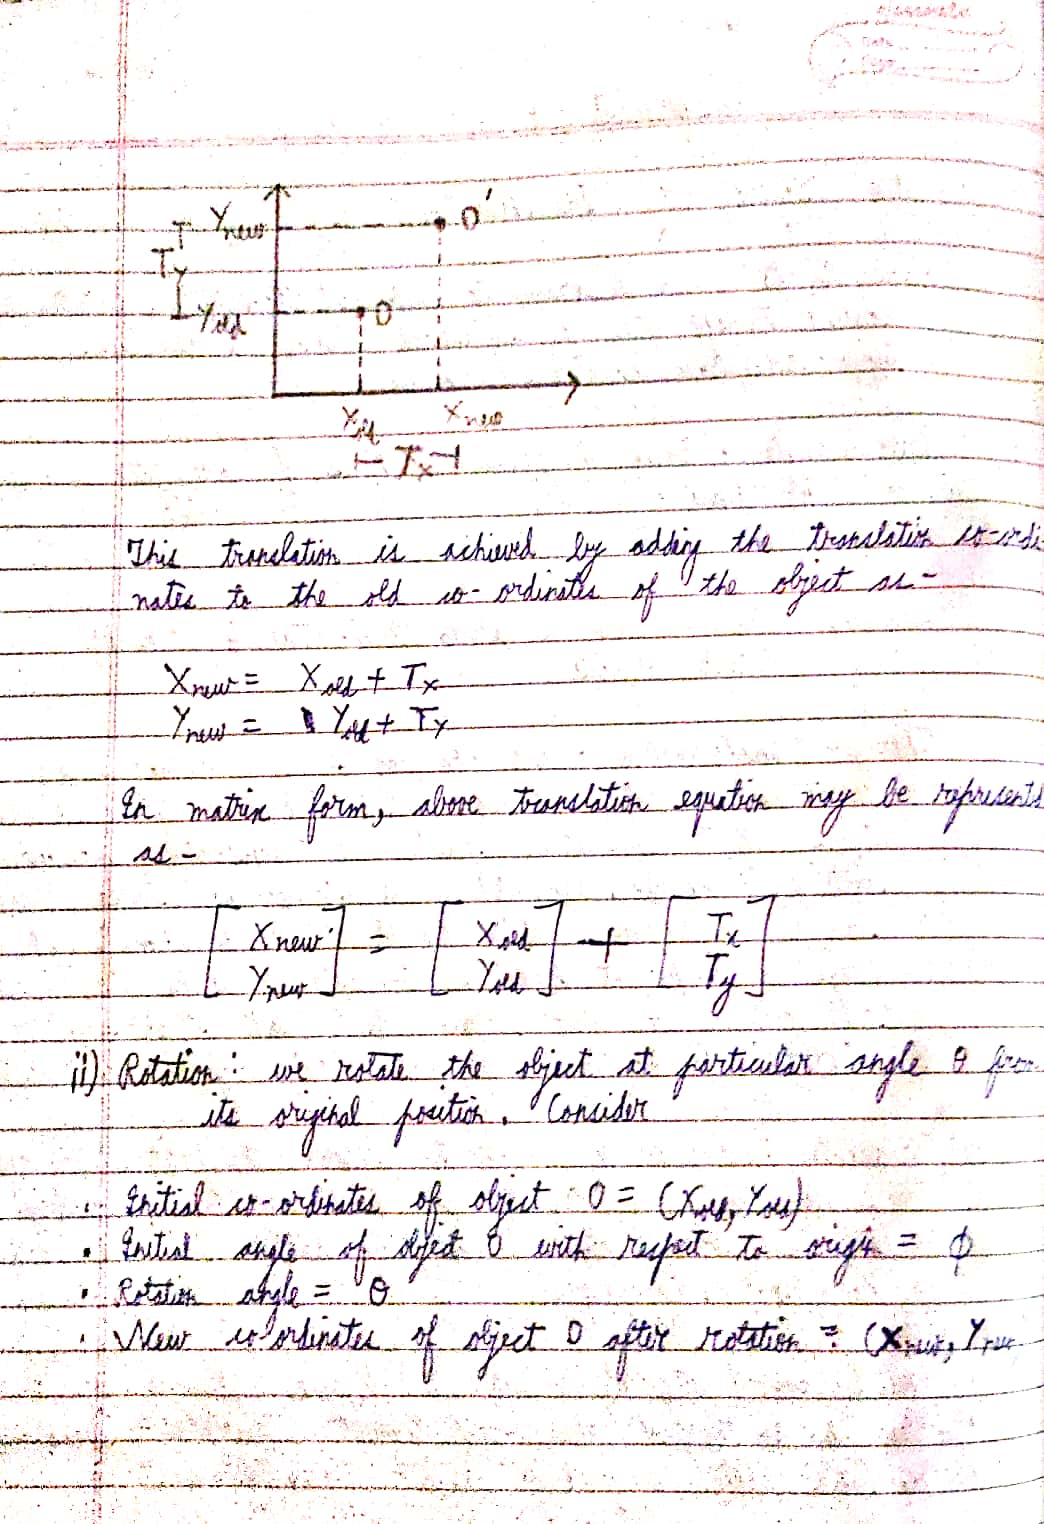 Ynew
O'
Ty
Yold
O
Xold Xnew
Tx
This translation is achieved by adding the translation co-ordi
nates to the old co-ordinates of the object as -
Xnew = Xold + Tx
Ynew = Yold + Ty
In matrix form, above translation equation may be represents
as -
[Xnew] = [Xold] + [Tx]
[Ynew] [Yold] [Ty]
ii) Rotation : we rotate the object at particular angle θ from
its original position. Consider
• Initial co-ordinates of object O = (Xold, Yold)
• Initial angle of object O with respect to origin = ϕ
• Rotation angle = θ
• New co-ordinates of object O after rotation = (Xnew, Ynew